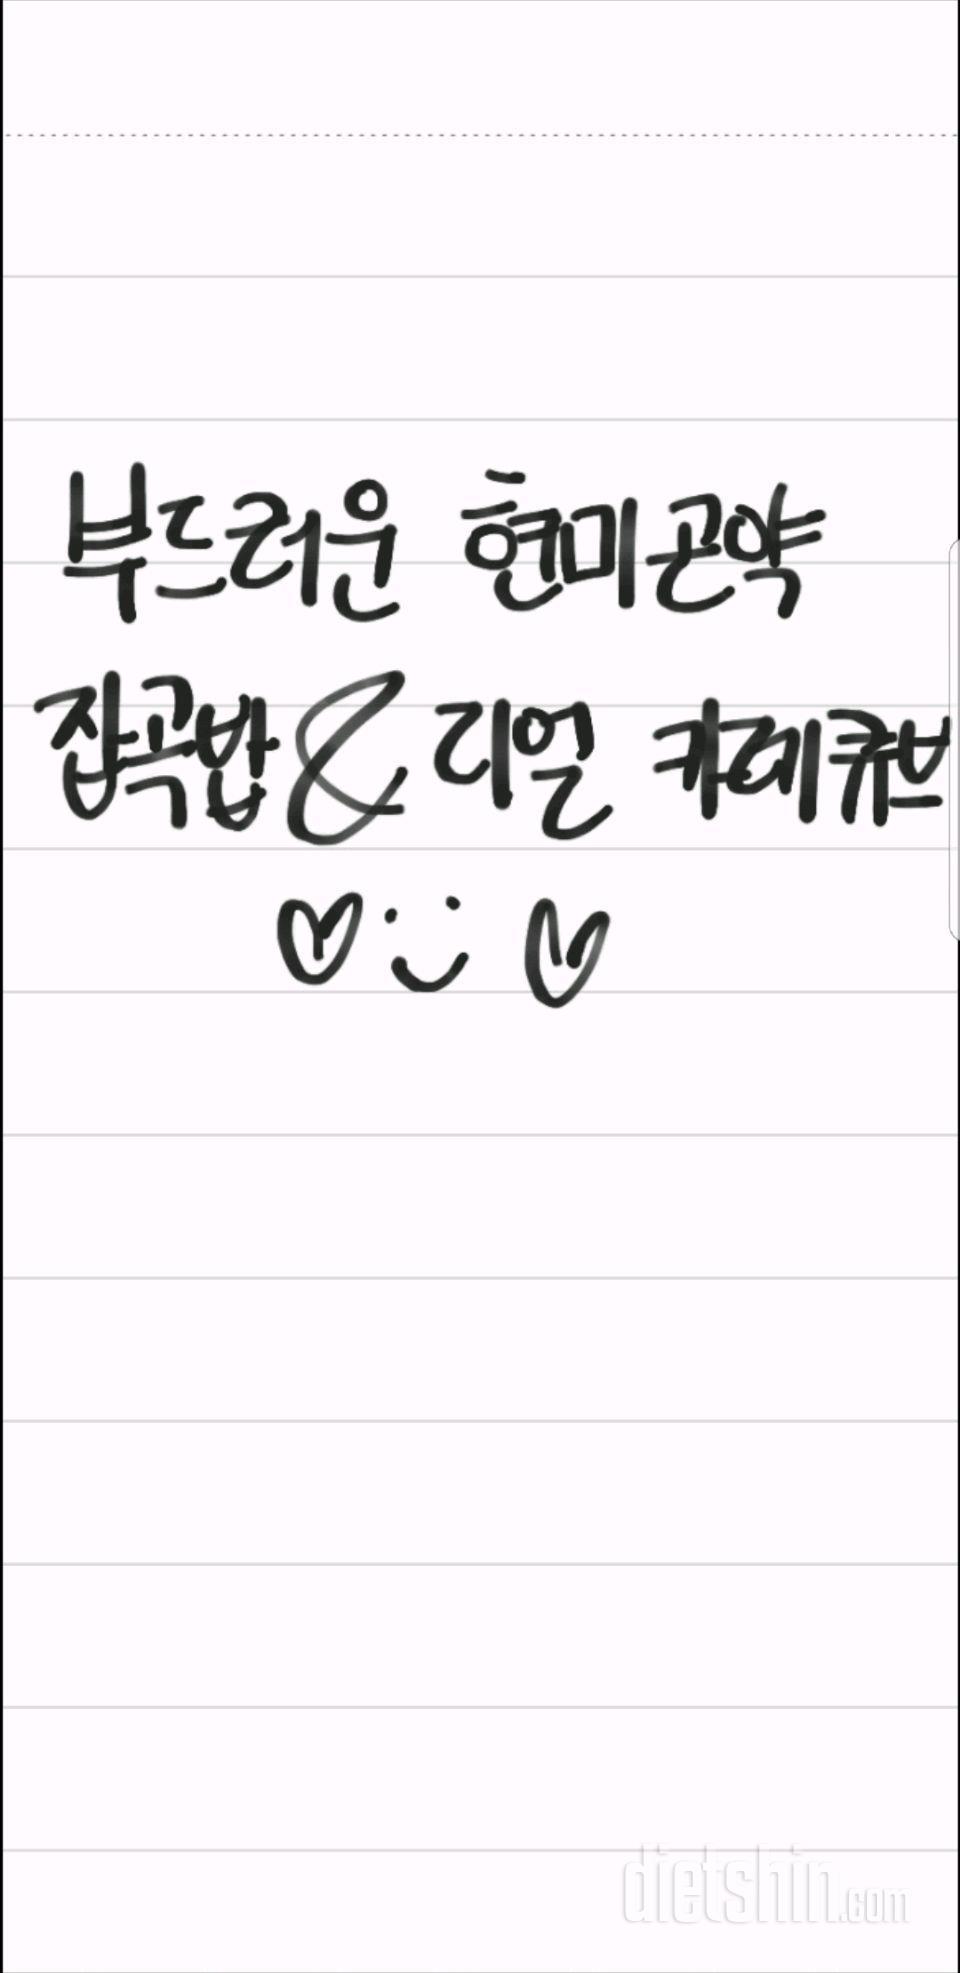 부드러운 현미곤약
잡곡밥 & 리얼 카레큐브
dietshin.com